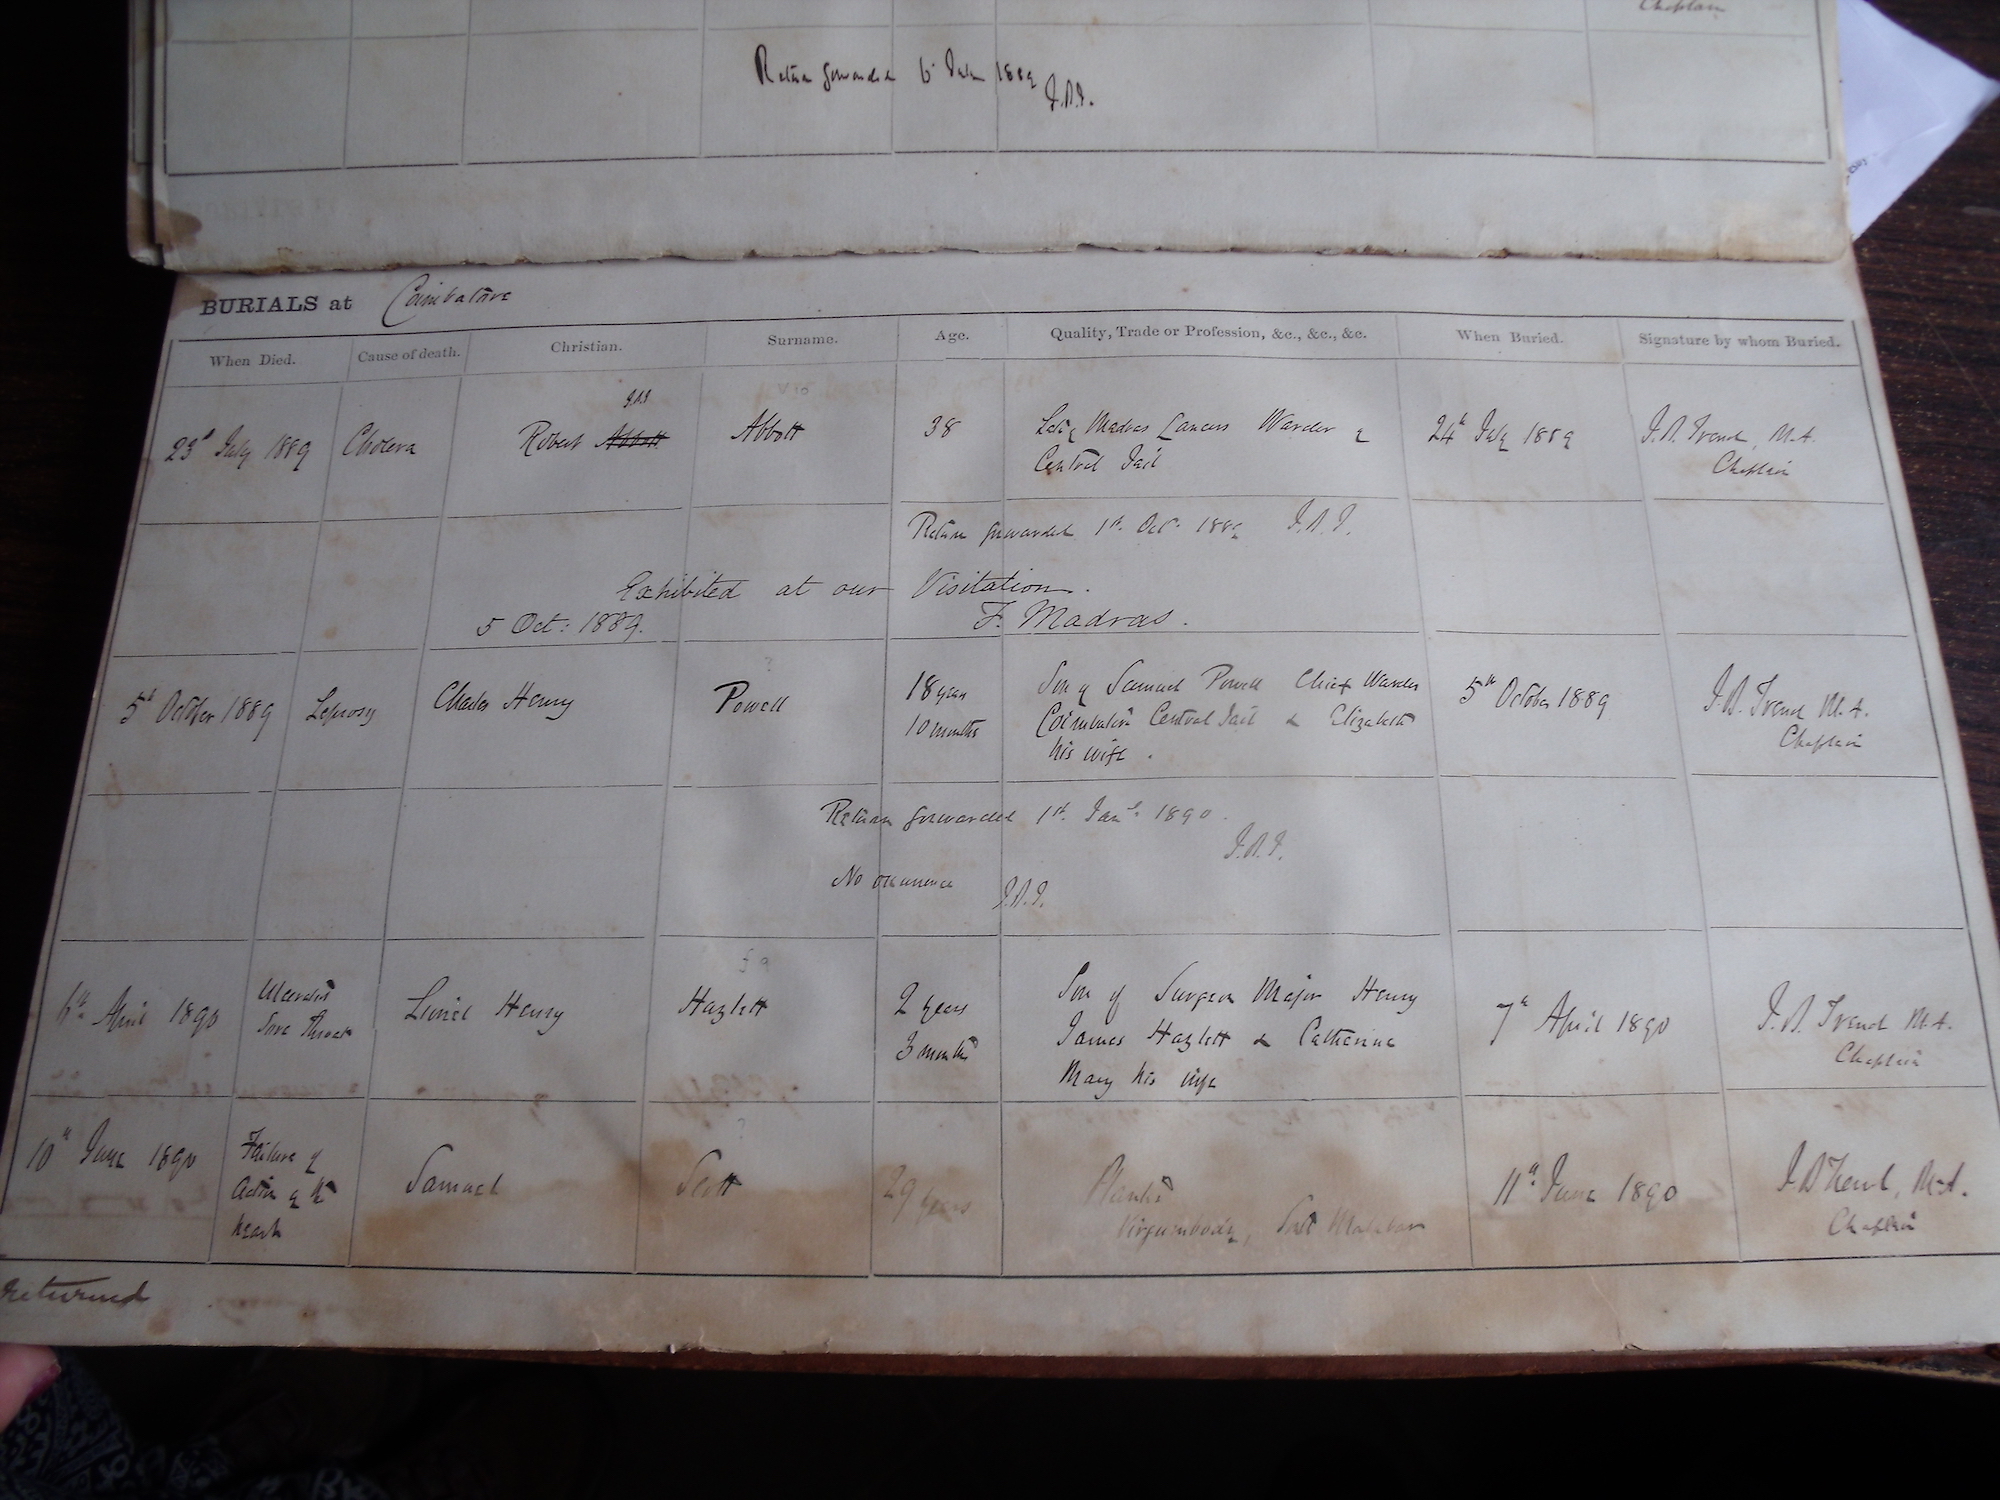 Chaplain
Return forwarded 6 July 1889
J.D.T.
BURIALS at Coimbatore
When Died. Cause of death. Christian. Surname. Age. Quality, Trade or Profession, &c., &c., &c. When Buried. Signature by whom Buried.
23d July 1889 Cholera Robert Abbott Abbott 38 Late Madras Lancers Warder 24th July 1889 M.A.
Central Jail Chaplain
Return forwarded 1st Oct. 1889
Exhibited at our Visitation.
5 Oct: 1889. F. Madras.
5th October 1889 Leprosy Charles Henry Powell 18 years Son of Samuel Powell Chief Warder 5th October 1889 M.A.
10 months Coimbatore Central Jail & Elizabeth Chaplain
his wife.
Return forwarded 1st Jany 1890.
No occurrence
6th April 1890 Ulcerated Lionel Henry Hazlett 2 years Son of Surgeon Major Henry 7th April 1890 M.A.
Sore Throat 3 months James Hazlett & Catherine Chaplain
Mary his wife
10th June 1890 Failure of Samuel Scott 29 years Planter 11th June 1890 M.A.
Action of the South Malabar Chaplain
heart
returned